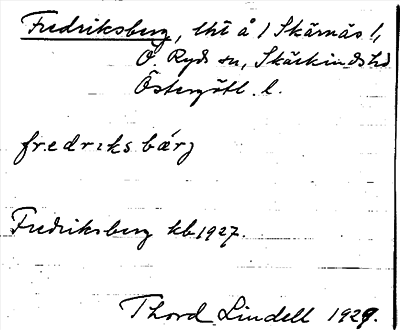 Fredriksberg, lht å 1 Skärnäs 1,
Ö. Ryds sn, Skärkinds hd
Östergötl. l.
fredriksbærj
Fredriksberg kb 1927.
Thord Lindell 1929.